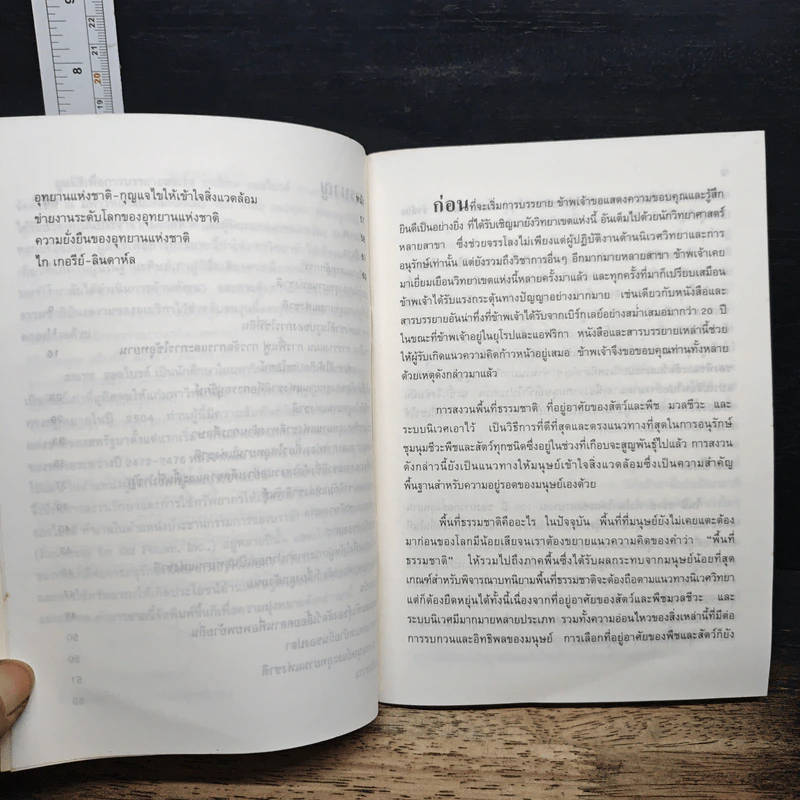 9
8
22
21
20
19
อุทยานแห่งชาติ-กุญแจไขให้เข้าใจสิ่งแวดล้อม
ข่ายงานระดับโลกของอุทยานแห่งชาติ
ความยั่งยืนของอุทยานแห่งชาติ
ไก เกอรีย์-ลินดาห์ล
ก่อนที่จะเริ่มการบรรยาย ข้าพเจ้าขอแสดงความขอบคุณและรู้สึก
ยินดีเป็นอย่างยิ่ง ที่ได้รับเชิญมายังวิทยาเขตแห่งนี้ อันเต็มไปด้วยนักวิทยาศาสตร์
หลายสาขา ซึ่งช่วยจรรโลงไม่เพียงแต่ผู้ปฏิบัติงานด้านนิเวศวิทยาและการ
อนุรักษ์เท่านั้น แต่ยังรวมถึงวิชาการอื่นๆ อีกมากมายหลายสาขา ข้าพเจ้าเคย
มาเยี่ยมเยือนวิทยาเขตแห่งนี้หลายครั้งมาแล้ว และทุกครั้งที่มาก็เปรียบเสมือน
ข้าพเจ้าได้รับแรงกระตุ้นทางปัญญาอย่างมากมาย เช่นเดียวกับหนังสือและ
สารบรรยายอันน่าทึ่งที่ข้าพเจ้าได้รับจากเบิร์กเลย์อย่างสม่ำเสมอมากว่า 20 ปี
ในขณะที่ข้าพเจ้าอยู่ในยุโรปและแอฟริกา หนังสือและสารบรรยายเหล่านี้ช่วย
ให้ผู้รับเกิดแนวความคิดก้าวหน้าอยู่เสมอ ข้าพเจ้าจึงขอขอบคุณท่านทั้งหลาย
ด้วยเหตุดังกล่าวมาแล้ว
การสงวนพื้นที่ธรรมชาติ ที่อยู่อาศัยของสัตว์และพืช มวลชีวะ และ
ระบบนิเวศเอาไว้ เป็นวิธีการที่ดีที่สุดและตรงแนวทางที่สุดในการอนุรักษ์
ชุมนุมชีวะพืชและสัตว์ทุกชนิดซึ่งอยู่ในช่วงที่เกือบจะสูญพันธุ์ไปแล้ว การสงวน
ดังกล่าวนี้ยังเป็นแนวทางให้มนุษย์เข้าใจสิ่งแวดล้อมซึ่งเป็นความสำคัญ
พื้นฐานสำหรับความอยู่รอดของมนุษย์เองด้วย
พื้นที่ธรรมชาติคืออะไร ในปัจจุบัน พื้นที่ที่มนุษย์ยังไม่เคยแตะต้อง
มาก่อนของโลกมีน้อยเสียจนเราต้องขยายแนวความคิดของคำว่า "พื้นที่
ธรรมชาติ" ให้รวมไปถึงภาคพื้นซึ่งได้รับผลกระทบจากมนุษย์น้อยที่สุด
เกณฑ์สำหรับพิจารณาบทนิยามพื้นที่ธรรมชาติจะต้องถือตามแนวทางนิเวศวิทยา
แต่ก็ต้องยืดหยุ่นได้ทั้งนี้เนื่องจากที่อยู่อาศัยของสัตว์และพืชมวลชีวะ และ
ระบบนิเวศมีมากมายหลายประเภท รวมทั้งความอ่อนไหวของสิ่งเหล่านี้ที่มีต่อ
การรบกวนและอิทธิพลของมนุษย์ การเลือกที่อยู่อาศัยของพืชและสัตว์ก็ยัง